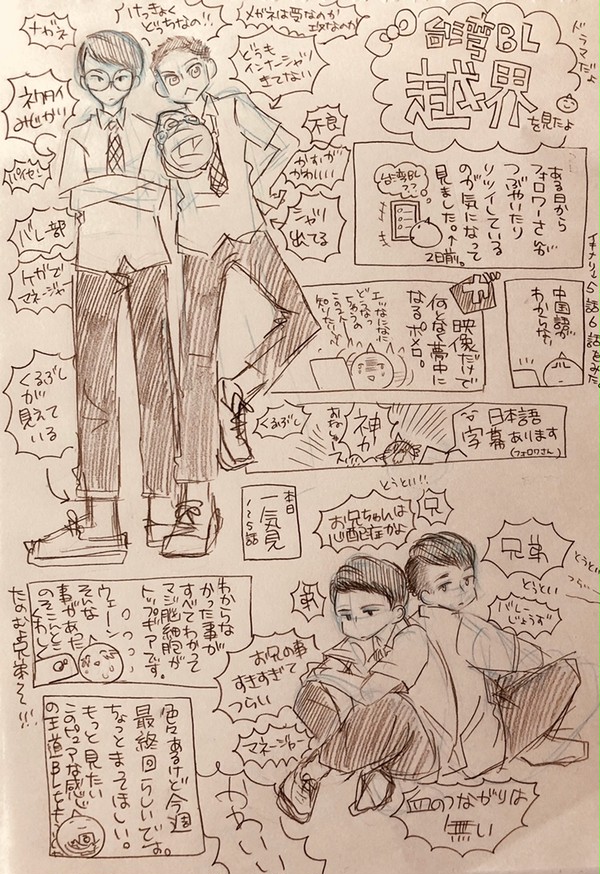 ドラマだよ
台湾BL
越界
を見たよ
ある日から
フォロワーさんが
つぶやいたり
リツイしている
のが気になって
見ました。
2日前。
台湾BL
??
イキナリ5話6話をみた。
中国語が
わからない
映像だけで
何となく夢中に
なるポメロ。
エッなになに
どうなって
るの
この2人
知りたい
日本語
字幕あります
(フォロワさん)
神か
くるぶし
本日
一気見
1〜5話
けっきょく
どっちなの!!
メガネは夢なのか
メガネ
どうも
インナーシャツ
きてない
ネクタイ
みじかい
パイセン
不良
かおが
かわいい
シャツ
出てる
バレー部
ケガで
マネージャー
くるぶし
が
見えて
いる
とうとい!!
お兄ちゃんは
心配症かよ
兄
兄弟
とうとい
とうとい
つらい
バレー
じょうず
弟
お兄の事
すきすぎて
つらい
マネージャー
血のつながりは
無い
わからな
かった事が
すべてわかって
マジ脳細胞が
トップギアです。
ウェーン
そんな
事があった
のそこんとこ
くわしく
たのむよ兄弟
色々あるけど今週
最終回らしいです。
ちょっとまってほしい。
もっと見たい
このピュアな感じ
の王道BLを
かわいい